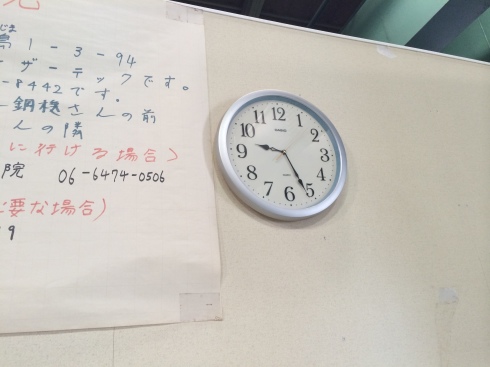 じま
島1-3-94
ーザーテックです。
-8442です.
鋼機さんの前
んの隣
に行ける場合)
院 06-6474-0506
必要な場合)
9
12
1
2
3
4
5
6
7
8
9
10
11